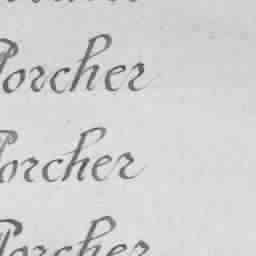 Porcher
Porcher
Porcher